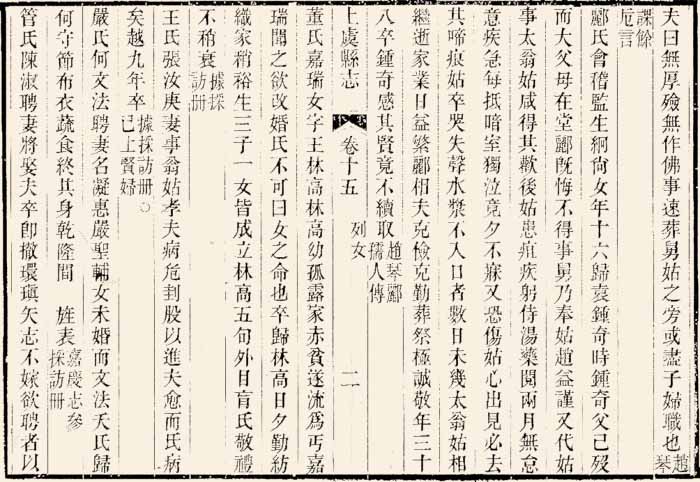 夫曰無厚殮無作佛事速葬舅姑之旁或盡子婦職也趙琴
譔餘
巵言
酈氏會稽監生絅尚女年十六歸袁鍾奇時鍾奇父已歿
而大父母在堂酈旣悔不得事舅乃奉姑趙益謹又代姑
事太翁姑咸得其歡後姑患疽疾躬侍湯藥閱兩月無怠
意疾急每抵暗室獨泣竟夕不寐又恐傷姑心出見必去
其啼痕姑卒哭失聲水漿不入口者數日未幾太翁姑相
繼逝家業日益繁酈相夫克儉克勤葬祭極誠敬年三十
八卒鍾奇感其賢竟不續取趙琴酈
孺人傳
上虞縣志
卷十五
列女
二
董氏嘉瑞女字王林高林高幼孤露家赤貧遂流爲丐嘉
瑞聞之欲改婚氏不可曰女之命也卒歸林高日夕勤紡
織家稍裕生三子一女皆成立林高五旬外目肓氏敬禮
不稍衰據採
訪册
王氏張汝庚妻事翁姑孝夫病危刲股以進夫愈而氏病
矣越九年卒據採訪册○
已上賢婦
嚴氏何文法聘妻名凝惠嚴聖輔女未婚而文法夭氏歸
何守節布衣蔬食終其身乾隆間 旌表嘉慶志參
採訪册
管氏陳淑聘妻將娶夫卒卽撤環瑱矢志不嫁欲聘者以